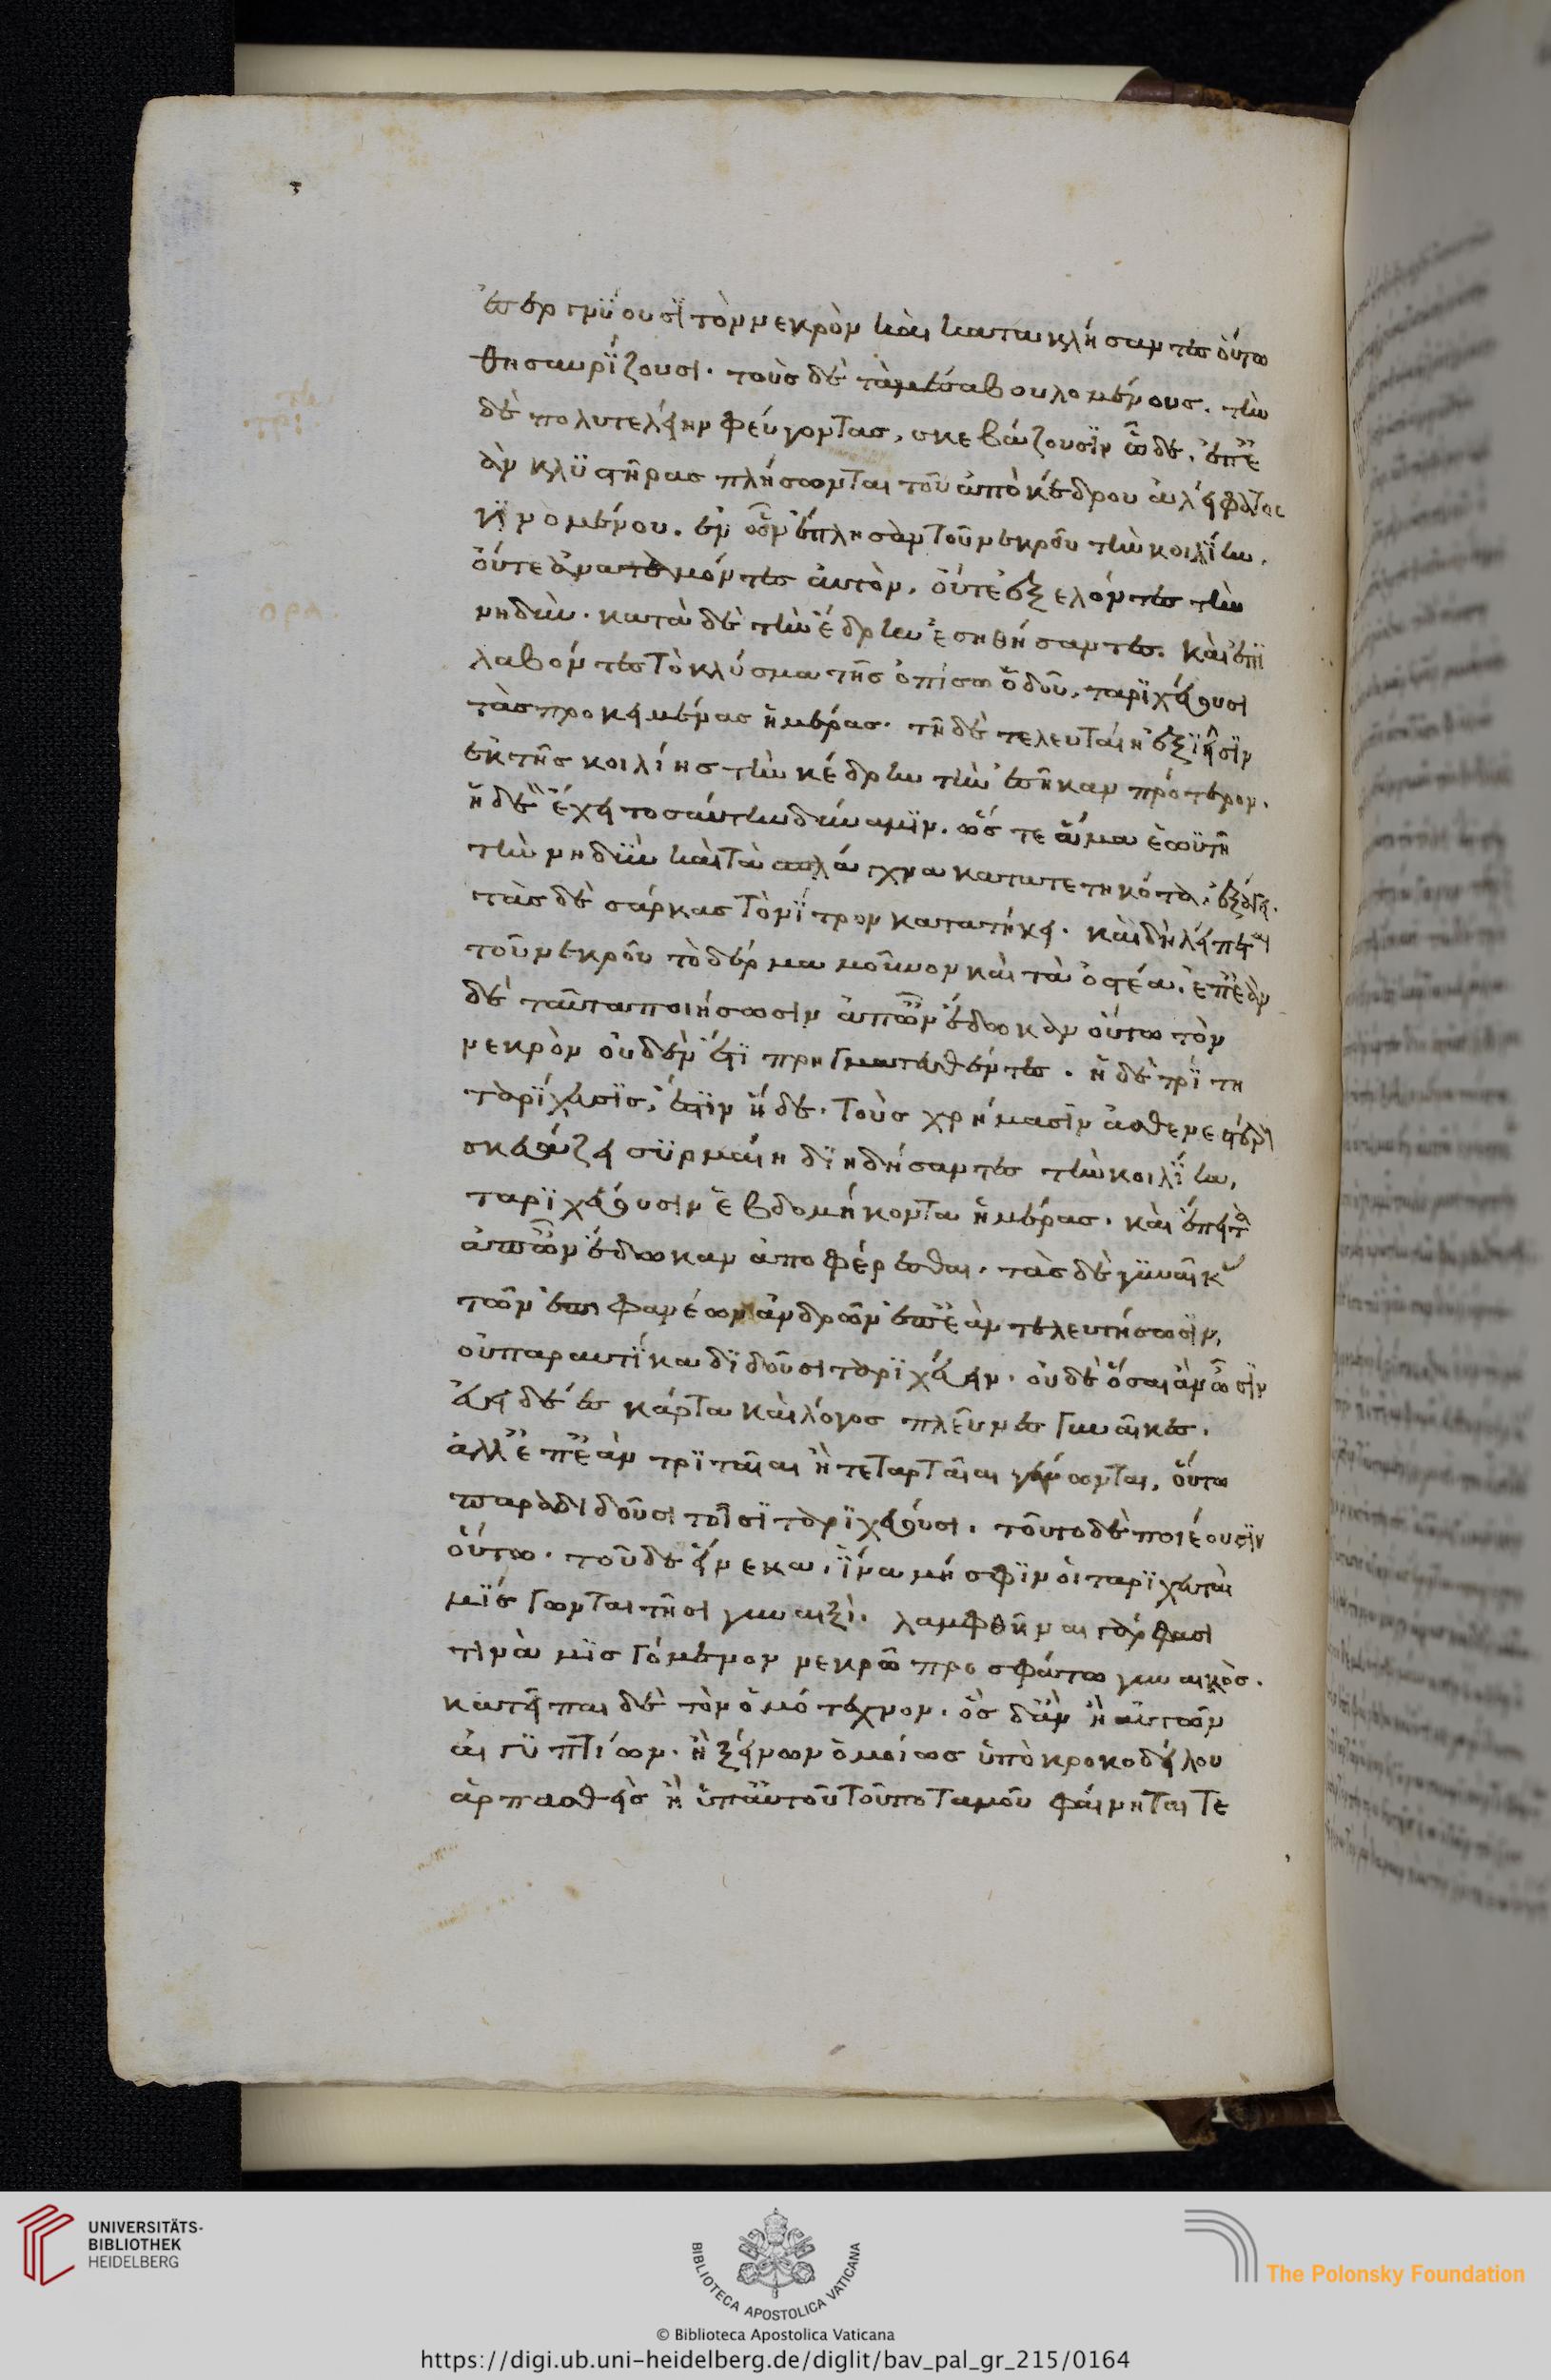 ἐσεργνύουσι τὸν νεκρὸν καὶ κατακλήσαντες οὕτω
θησαυρίζουσι. τοὺς δὲ τὰ μέσα βουλομένους. τὴν
δὲ πολυτελείην φεύγοντας, σκεβάζουσιν ὧδε. ἐπε
ὰν κλυστῆρας πλήσωνται τοῦ ἀπὸ κέδρου ἀλείφατος
γινομένου. ἐν ὧν ἔπλησαν τοῦ νεκροῦ τὴν κοιλίην.
οὔτε ἀνατεμόντες αὐτὸν, οὔτε ἐξελόντες τὴν
νηδὺν. κατὰ δὲ τὴν ἕδρην ἐσηθήσαντες. καὶ ἐπι
λαβόντες τὸ κλύσμα τῆς ὀπίσω ὁδοῦ. ταριχεύουσι
τὰς προκειμένας ἡμέρας. τῇ δὲ τελευταίῃ ἐξιεῖσιν
ἐκ τῆς κοιλίης τὴν κέδρην τὴν ἐσῆκαν πρότερον.
ἡ δὲ ἔχει τοσαύτην δύναμιν. ὥς τε ἅμα ἑωυτῇ
τὴν νηδὺν καὶ τὰ σπλάγχνα κατατετηκότα. ἐξάγει.
τὰς δὲ σάρκας τὸ νίτρον κατατήκει. καὶ δὴ λείπεται
τοῦ νεκροῦ τὸ δέρμα μοῦνον καὶ τὰ ὀστέα. ἐπεὰν
δὲ ταῦτα ποιήσωσιν ἀπῶν ἔδωκαν οὕτω τὸν
νεκρὸν οὐδὲν ἔτι πρηγματευθέντες. ἡ δὲ τρίτη
ταρίχευσις, ἐστὶν ἥδε. τοὺς χρήμασιν ἀσθενεστέρους
σκευάζει συρμαίῃ διηθήσαντες τὴν κοιλίην,
ταριχεύουσιν ἑβδομήκοντα ἡμέρας. καὶ ἔπειτα
ἀπῶν ἔδωκαν ἀποφέρεσθαι. τὰς δὲ γυναῖκας
τῶν ἐπιφανέων ἀνδρῶν ἐπεὰν τελευτήσωσιν,
οὐ παραυτίκα διδοῦσι ταριχεύειν. οὐδὲ ὅσαι ἂν ὦσιν
εὐειδέες κάρτα καὶ λόγος πλεῦνες γυναῖκες.
ἀλλ' ἐπεὰν τριταῖαι ἢ τεταρταῖαι γένωνται, οὕτω
παραδιδοῦσι τοῖσι ταριχεύουσι. τοῦτο δὲ ποιέουσιν
οὕτω. τοῦδε εἵνεκα. ἵνα μή σφιν οἱ ταριχευταὶ
μίσγωνται τῇσι γυναιξί. λαμφθῆναι γὰρ φασι
τινὰ μισγόμενον νεκρῶ προσφάτω γυναικὸς.
κατεῖπαι δὲ τὸν ὁμότεχνον. ὃς δ' ἂν ἢ αὐτῶν
αἰγυπτίων. ἢ ξείνων ὁμοίως ὑπὸ κροκοδείλου
ἁρπασθεὶς ἢ ὑπ' αὐτοῦ τοῦ ποταμοῦ φαίνηται τε
ὅρα.
UNIVERSITÄTS-
BIBLIOTHEK
HEIDELBERG
BIBLIOTECA APOSTOLICA VATICANA
The Polonsky Foundation
© Biblioteca Apostolica Vaticana
https://digi.ub.uni-heidelberg.de/diglit/bav_pal_gr_215/0164